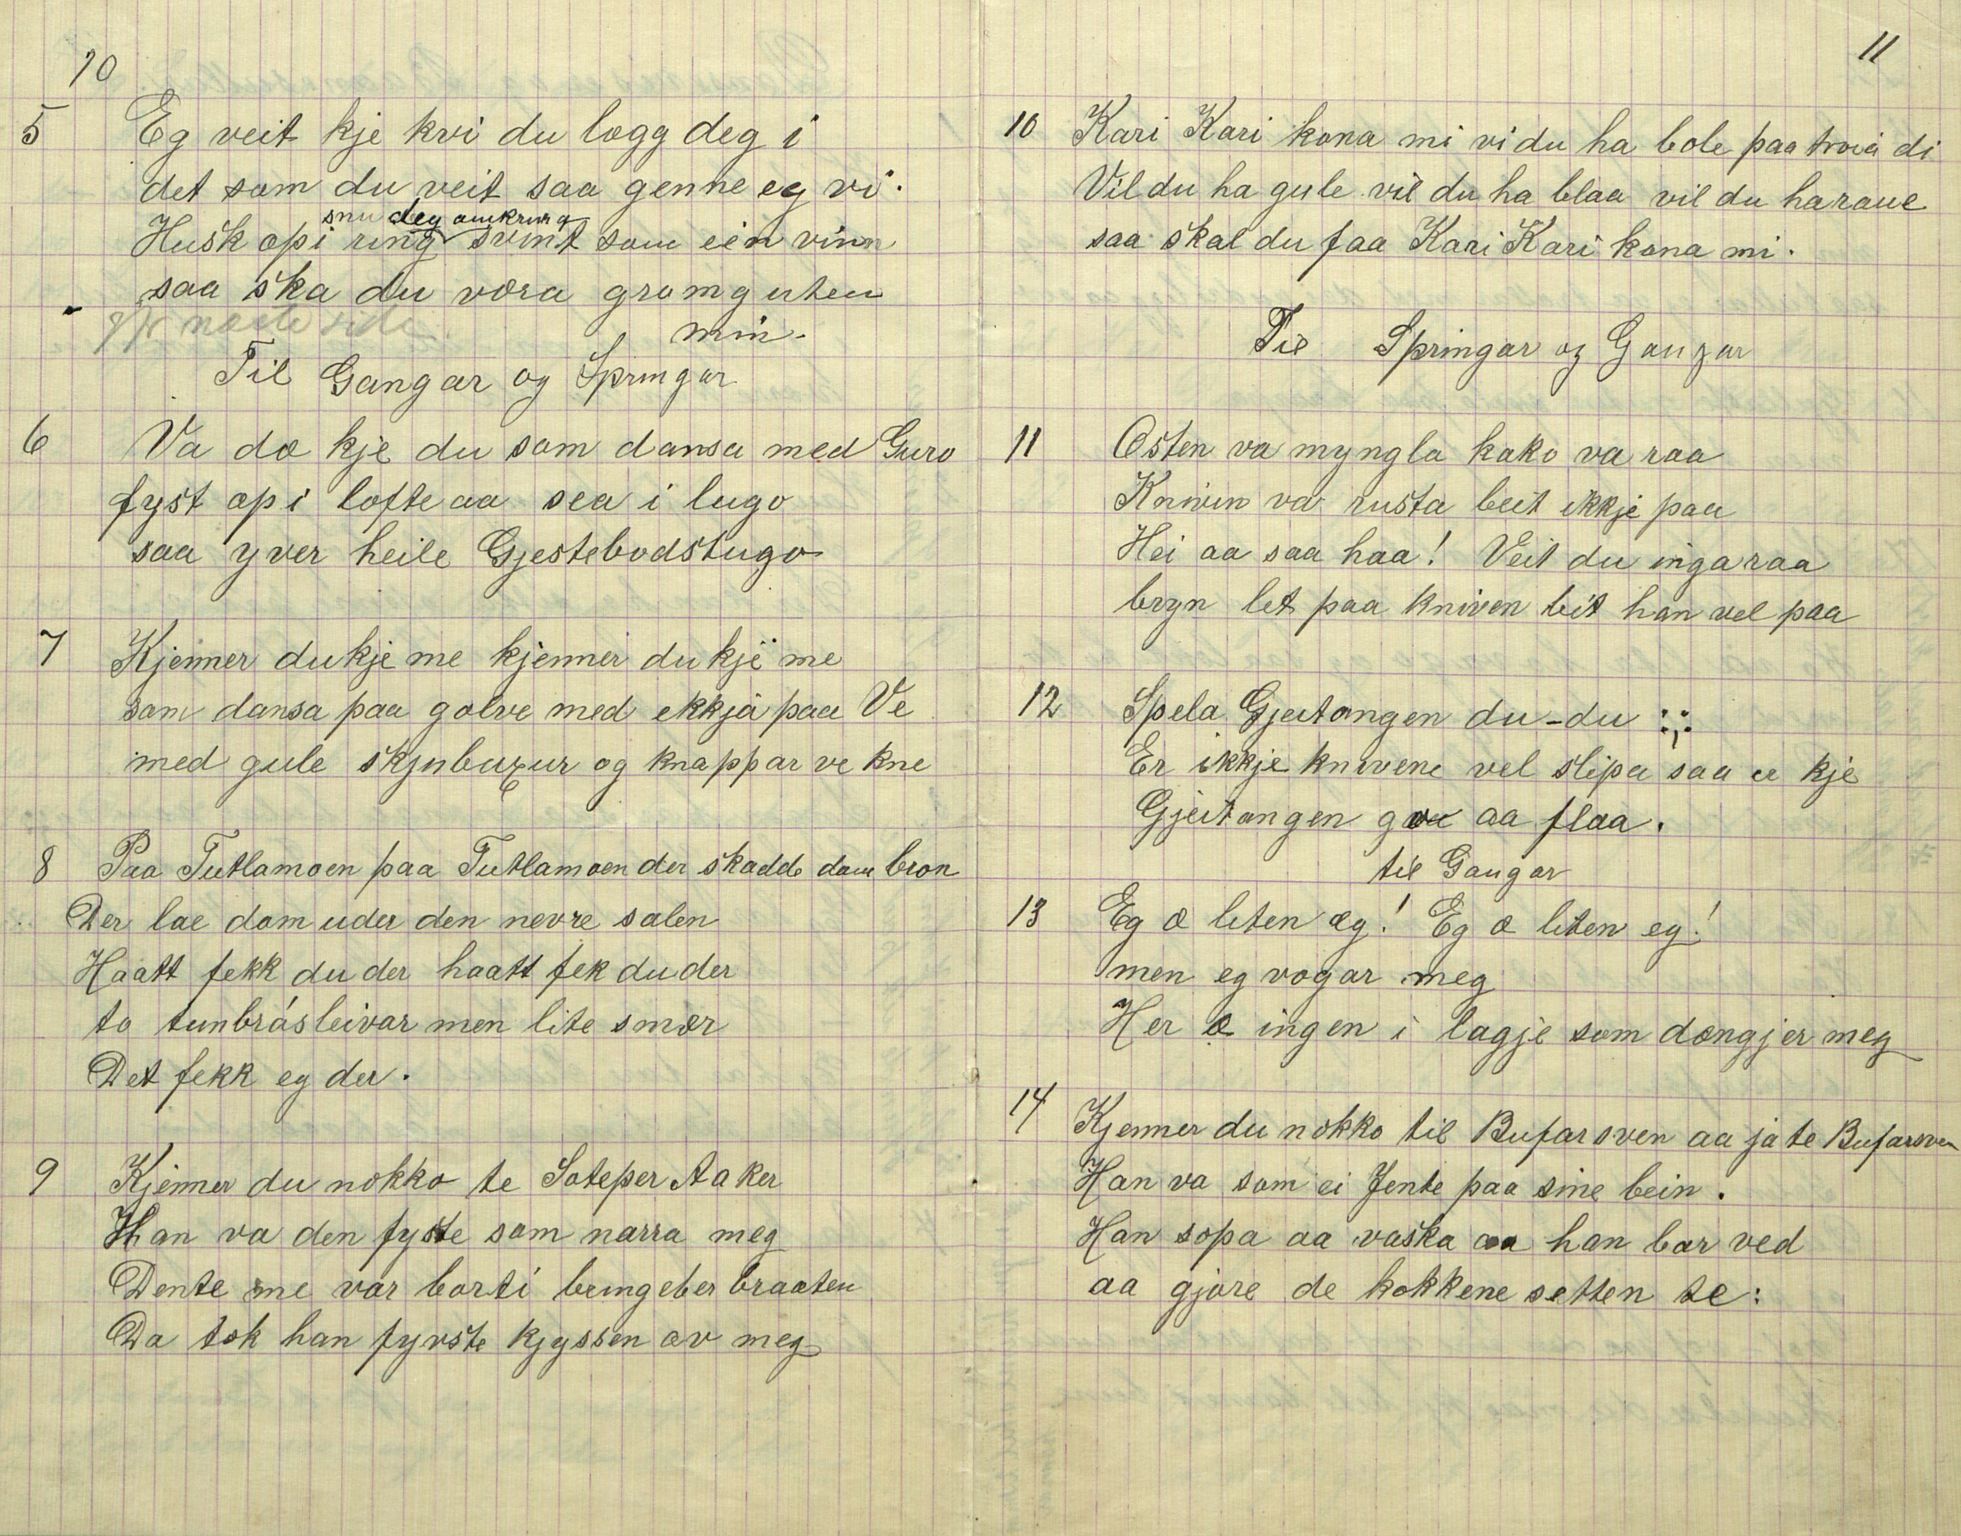 10
5 Eg veit kje kvi du lægg deg i
det som du veit saa genne eg vi.
snu deg omkring
Husk op i ring svint som ein vinn
saa ska du væra gromguten
min.
næste side
Til Gangar og Springar
6 Va dæ kje du som dansa med Guro
fyst op i lofte aa sea i lugo
saa yver heile Gjestebodstugo
7 Kjenner du kje me kjenner du kje me
som dansa paa golve med ekkja paa Ve
med gule skjnbuxur og knappar ve kne
8 Paa Tutlamoen paa Tutlamoen der skadde dom bron
Der lae dom uder den nevre salen
Haatt fekk du der haatt fek du der
to tunbrásleivar men lite smør
Det fekk eg der.
9 Kjenner du nokko te Soteper Aaker
Han va den fyste som narra meg
Dente me var borti bringeber braaten
Da tok han fyrste kjyssen av meg
11
10 Kari Kari kona mi vi du ha bole paa troia di
Vil du ha gule vil du ha blaa vil du ha raue
saa skal du faa Kari Kari kona mi.
Til Springar og Gangar
11 Osten va myngla kako va raa
Knivin va rusta beit ikkje paa
Hei aa saa haa! Veit du inga raa
bryn let paa kniven bit han vel paa
12 Spela Gjeitongen du-du :,:
Er ikkje knivene vel slipa saa æ kje
Gjeitongen go aa flaa.
til Gangar
13 Eg æ liten eg! Eg æ liten eg!
men eg vogar meg
Her æ ingen i lagje som dængjer meg
14 Kjenner du nokko til Bufarsven aa ja te Bufarsven
Han va som ei Jente paa sine bein.
Han sopa aa vaska aa han bar ved
aa gjore de kokkene setten te: